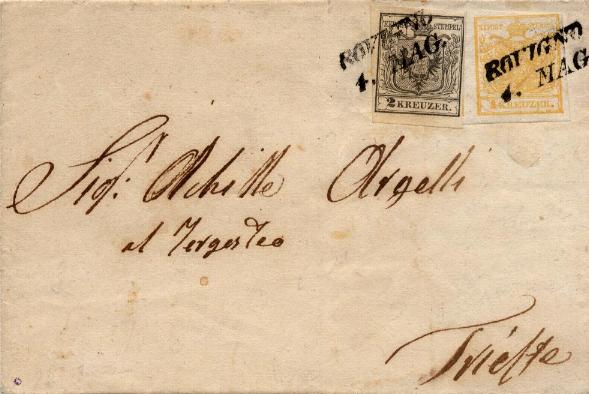 ROVIGNO
4. MAG.
STEMPEL
2 KREUZER.
ROVIGNO
4. MAG
1 KREUZER.
Sigr. Achille Argelli
al Tergesteo
Trieste